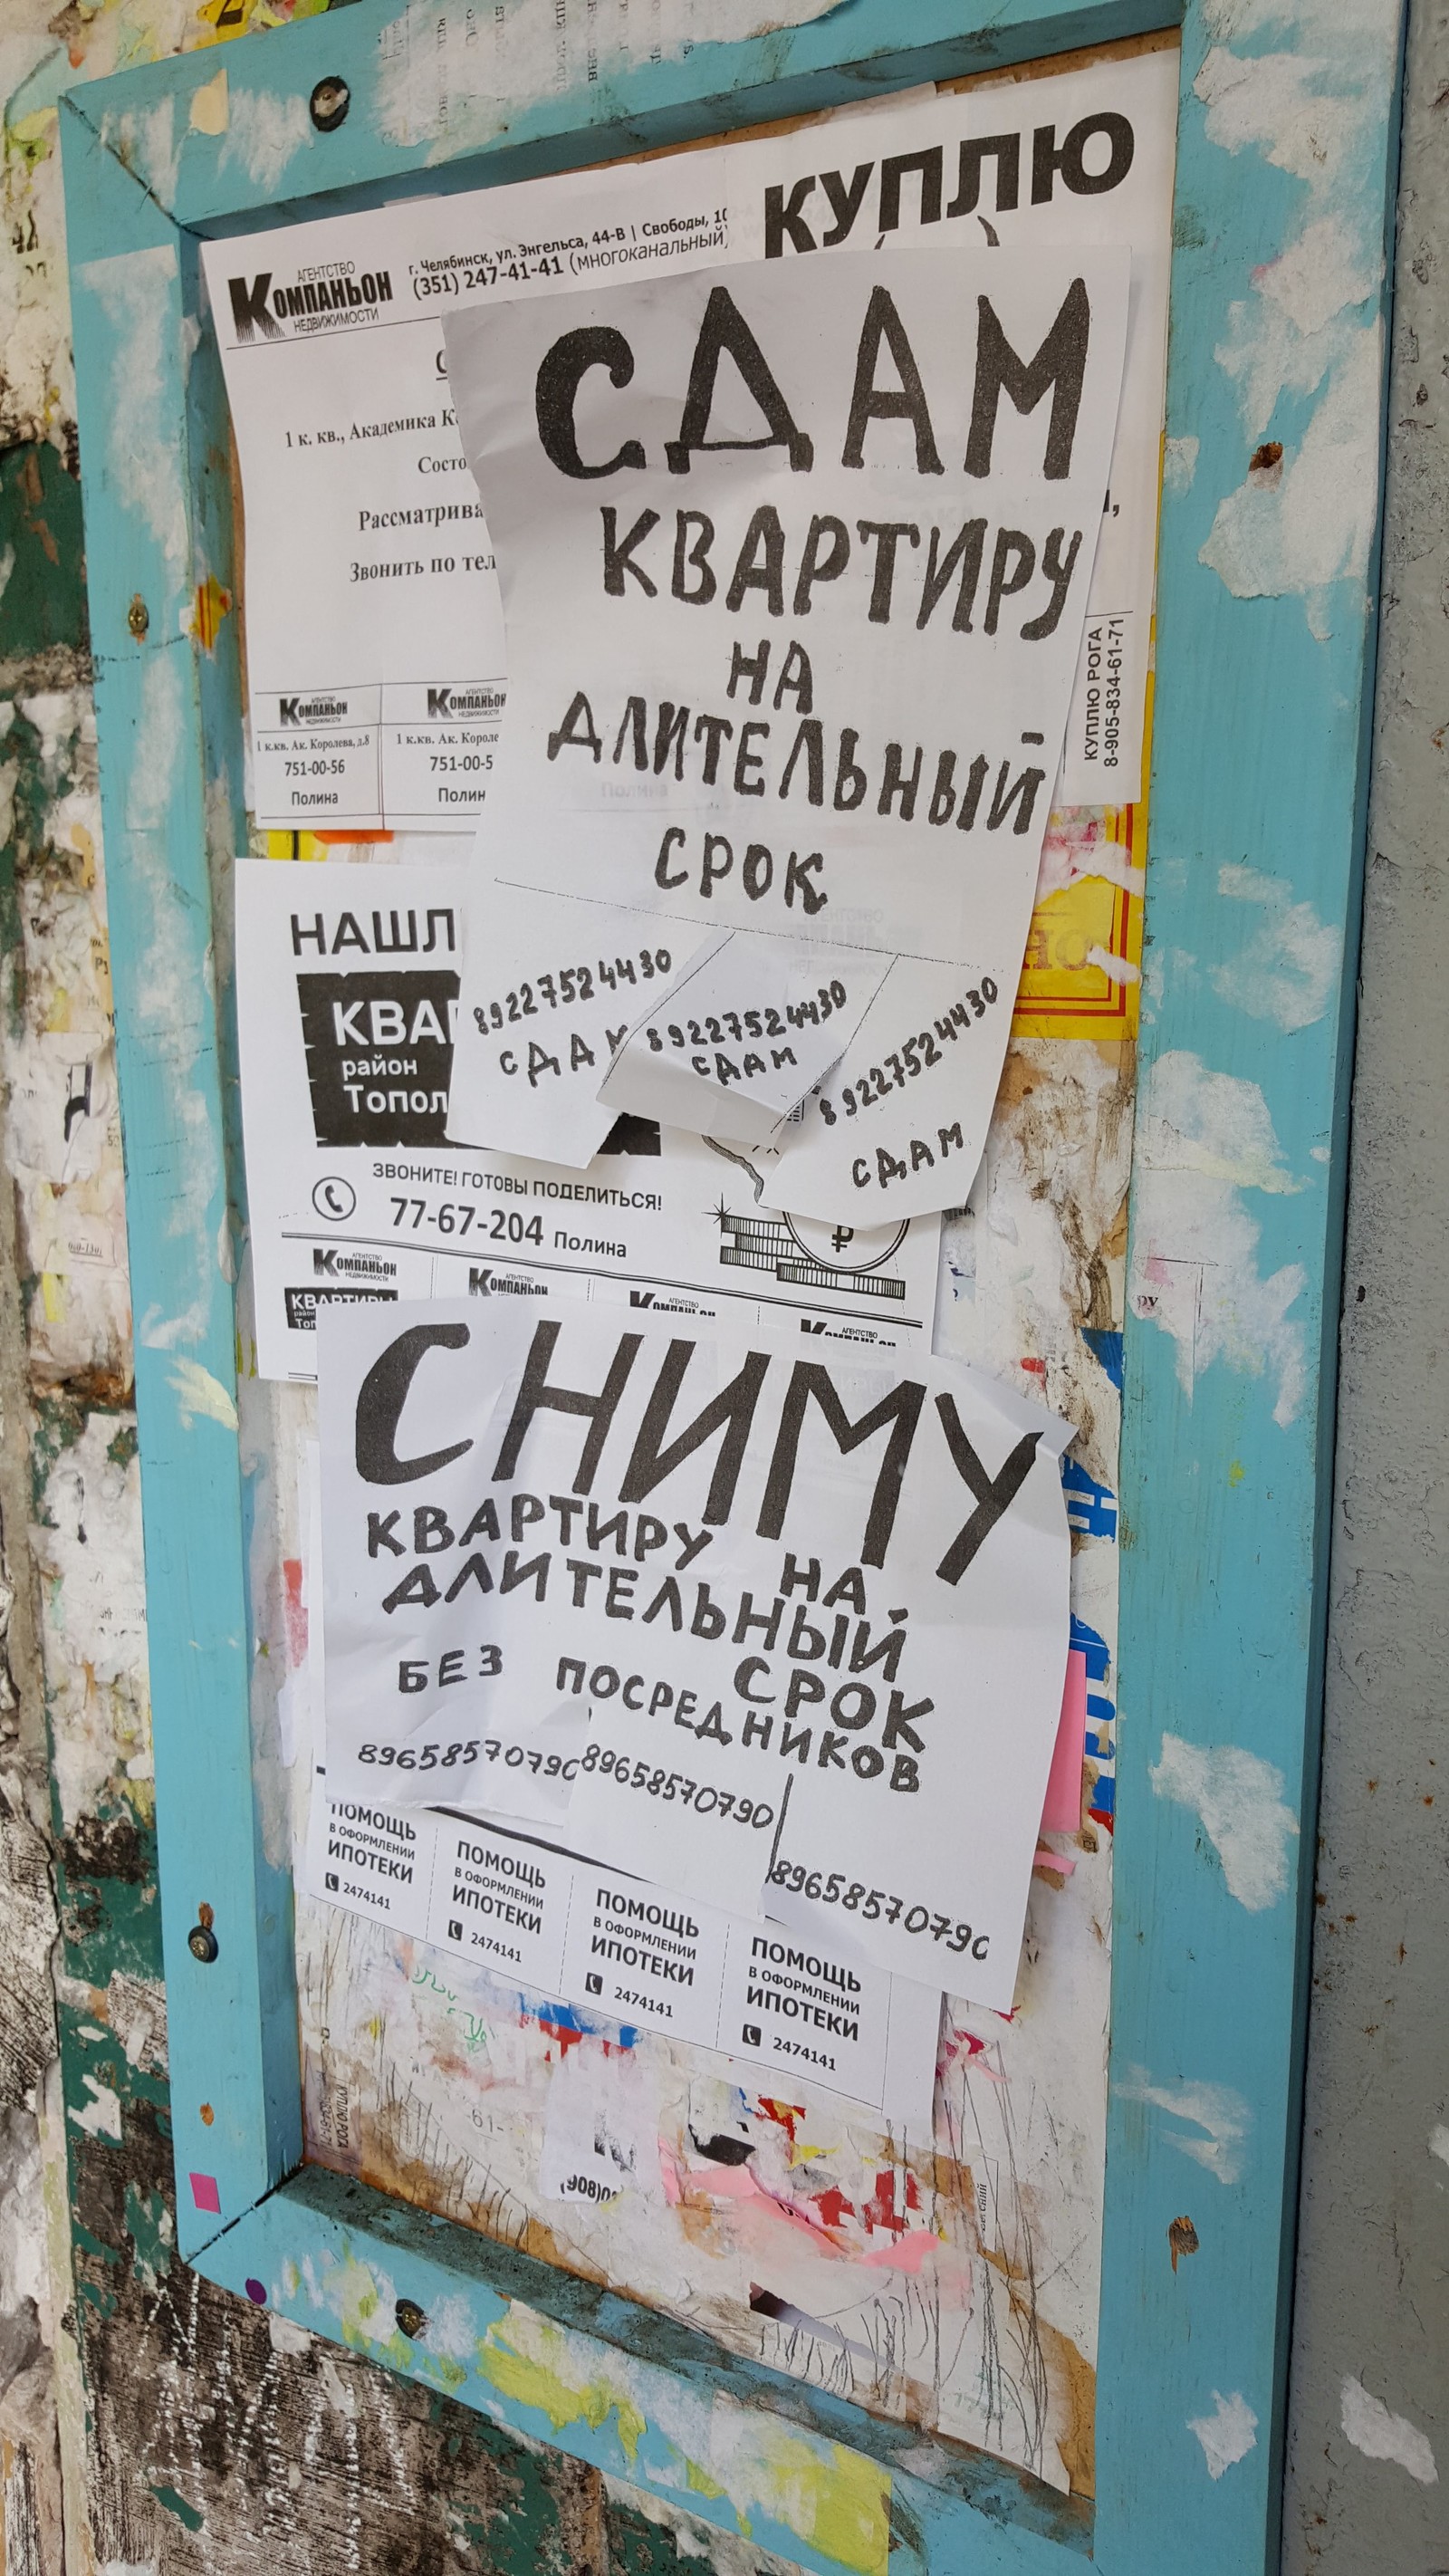 КУПЛЮ
АГЕНТСТВО
КОМПАНЬОН
НЕДВИЖИМОСТИ
г. Челябинск, ул. Энгельса, 44-В | Свободы, 10
(351) 247-41-41 (многоканальный)
1 к. кв., Академика К
Состо
Рассматрива
Звонить по тел
АГЕНТСТВО
КОМПАНЬОН
НЕДВИЖИМОСТИ
1 к.кв. Ак. Королева, д.8
751-00-56
Полина
АГЕНТСТВО
КОМПАНЬОН
НЕДВИЖИМОСТИ
1 к.кв. Ак. Короле
751-00-5
Полин
КУПЛЮ РОГА
8-905-834-61-71
СДАМ
КВАРТИРУ
НА
ДЛИТЕЛЬНЫЙ
СРОК
89227524430
СДАМ
89227524430
СДАМ
89227524430
СДАМ
НАШЛ
КВА
район
Топол
ЗВОНИТЕ! ГОТОВЫ ПОДЕЛИТЬСЯ!
77-67-204 Полина
₽
АГЕНТСТВО
КОМПАНЬОН
НЕДВИЖИМОСТИ
КВАРТИРЫ
район
Топ
АГЕНТСТВО
КОМПАНЬОН
АГЕНТСТВО
КОМПАНЬОН
АГЕНТСТВО
КОМПАНЬОН
СНИМУ
КВАРТИРУ НА
ДЛИТЕЛЬНЫЙ
СРОК
БЕЗ ПОСРЕДНИКОВ
89658570790
89658570790
89658570790
ПОМОЩЬ
В ОФОРМЛЕНИИ
ИПОТЕКИ
2474141
ПОМОЩЬ
В ОФОРМЛЕНИИ
ИПОТЕКИ
2474141
ПОМОЩЬ
В ОФОРМЛЕНИИ
ИПОТЕКИ
2474141
ПОМОЩЬ
В ОФОРМЛЕНИИ
ИПОТЕКИ
2474141
-61-
(908)0